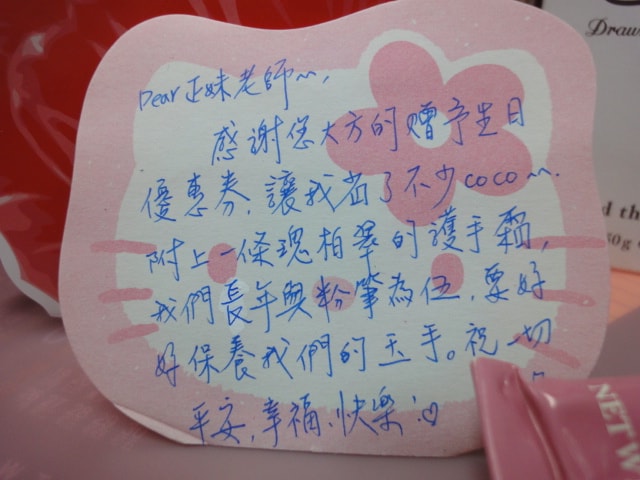 Dear 正妹老師~,
感謝您大方的贈予生日
優惠券,讓我省了不少coco~.
附上一條瑰柏翠的護手霜,
我們長年與粉筆為伍,要好
好保養我們的玉手。祝一切
平安,幸福、快樂!♡
Draw
d th
50g
NET W